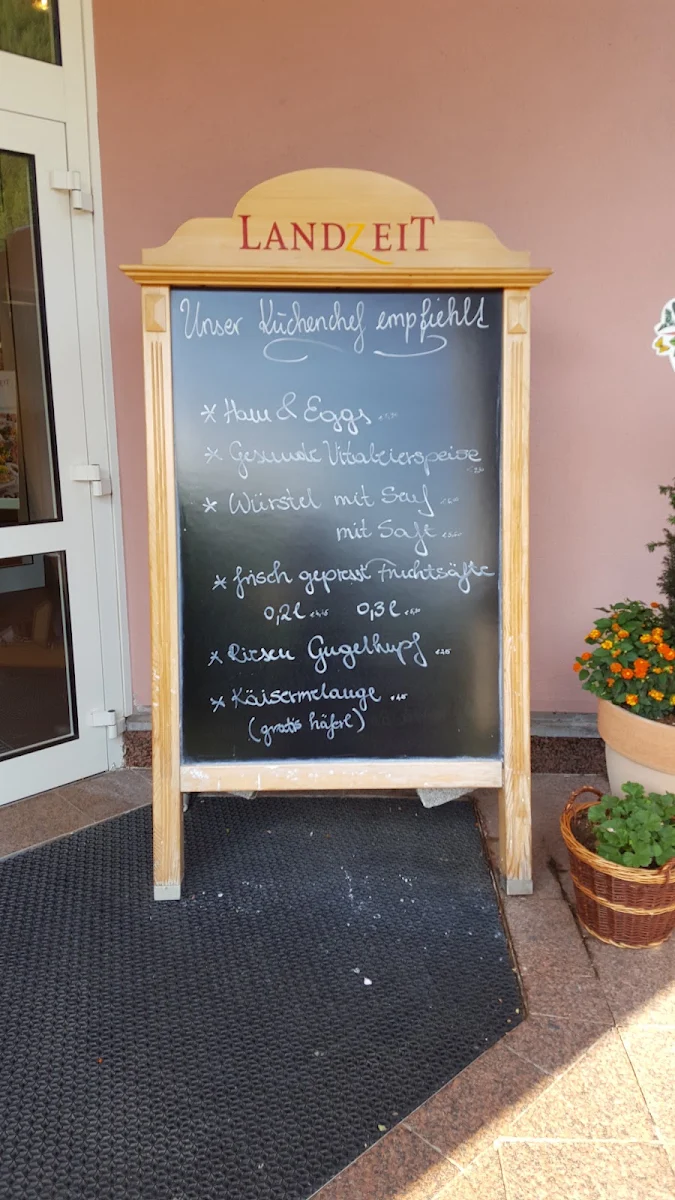 LANDZEIT
Unser Küchenchef empfiehlt
* Ham & Eggs
* Gesunde Vitaleierspeise
* Würstel mit Senf
mit Saft
* frisch gepresst Fruchtsäfte
0,2l 0,3l
* Riesen Gugelhupf
* Kaisermelange
(gratis häferl)